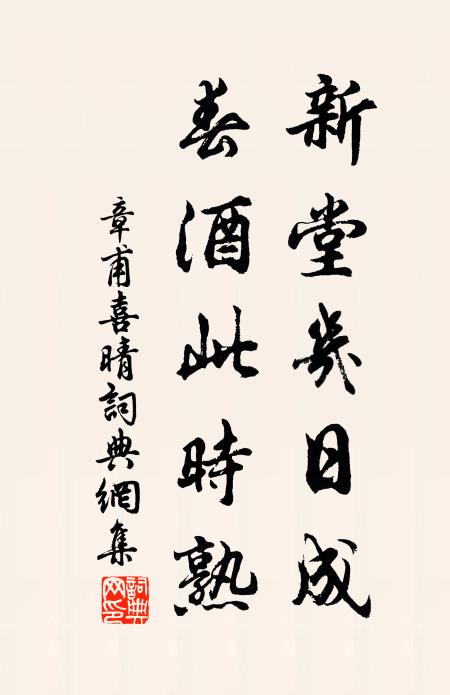 新堂幾日成
春酒此時熟
章甫喜晴詞典網集
詞典網印